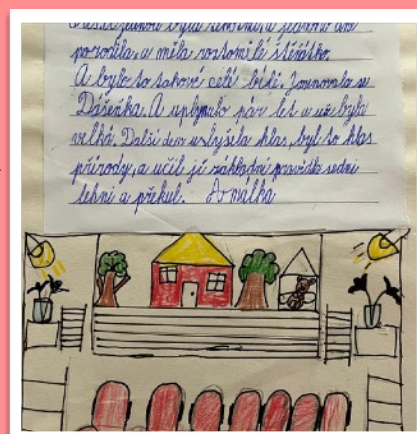 porodila, a měla roztomilé štěňátko.
A bylo to takové celé bílé. Jmenovala se
Dášeňka. A uplynulo pár let a už byla
velká. Další den uslyšela hlas, byl to hlas
přírody, a učil jí základní pravidla sedni
lehni a překul.